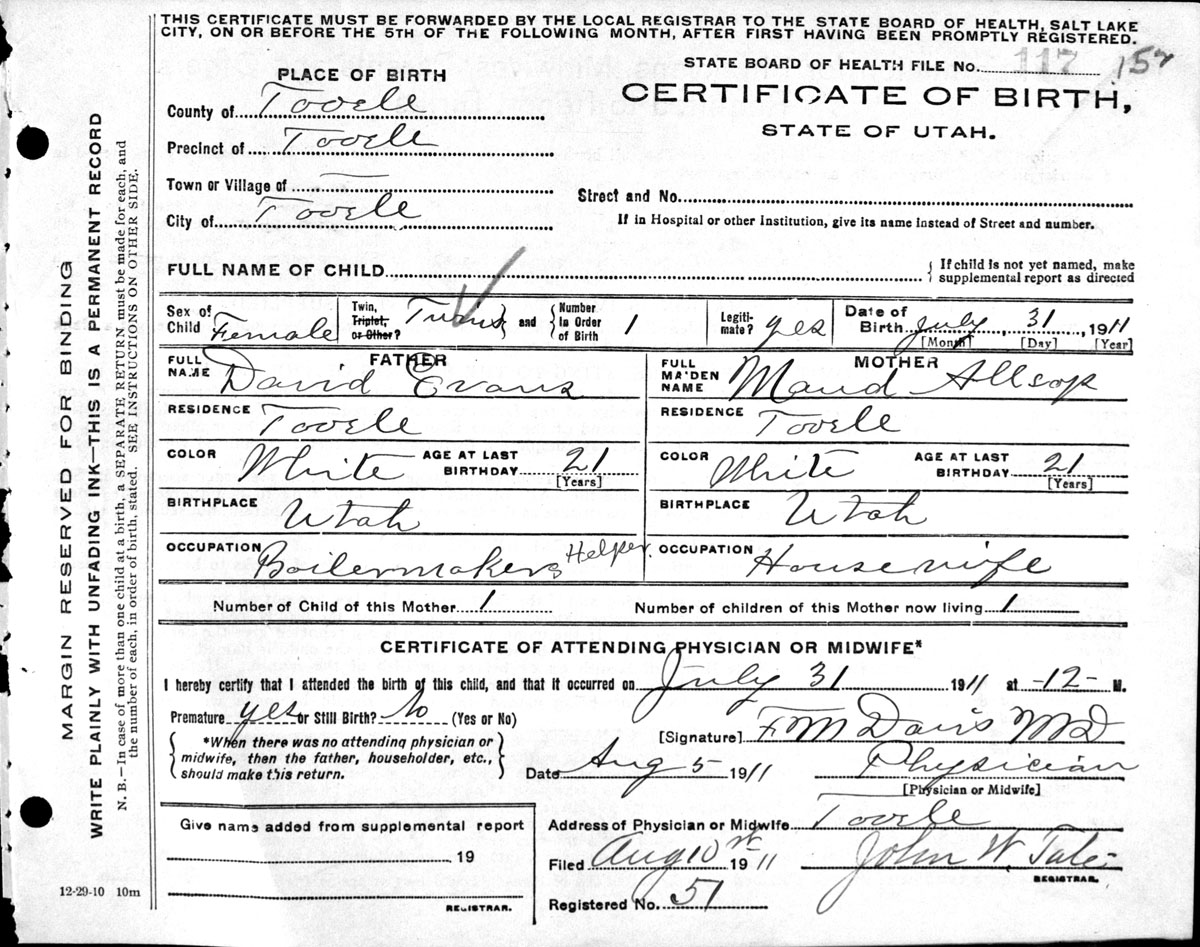 THIS CERTIFICATE MUST BE FORWARDED BY THE LOCAL REGISTRAR TO THE STATE BOARD OF HEALTH, SALT LAKE
CITY, ON OR BEFORE THE 5TH OF THE FOLLOWING MONTH, AFTER FIRST HAVING BEEN PROMPTLY REGISTERED.
MARGIN RESERVED FOR BINDING
WRITE PLAINLY WITH UNFADING INK—THIS IS A PERMANENT RECORD
N. B.—In case of more than one child at a birth, a SEPARATE RETURN must be made for each, and
the number of each, in order of birth, stated. SEE INSTRUCTIONS ON OTHER SIDE.
STATE BOARD OF HEALTH FILE No. 117 157
CERTIFICATE OF BIRTH,
STATE OF UTAH.
PLACE OF BIRTH
County of Tooele
Precinct of Tooele
Town or Village of
City of Tooele
Street and No.
If in Hospital or other Institution, give its name instead of Street and number.
FULL NAME OF CHILD
If child is not yet named, make
supplemental report as directed
Sex of Child Female
Twin, Triplet, or Other? Twins and Number In Order of Birth 1
Legitimate? yes
Date of Birth July 31, 1911
[Month] [Day] [Year]
FATHER
FULL NAME David Evans
RESIDENCE Tooele
COLOR White AGE AT LAST BIRTHDAY 21
[Years]
BIRTHPLACE Utah
OCCUPATION Boilermakers Helper.
MOTHER
FULL MAIDEN NAME Maud Allsop
RESIDENCE Tooele
COLOR White AGE AT LAST BIRTHDAY 21
[Years]
BIRTHPLACE Utah
OCCUPATION Housewife
Number of Child of this Mother 1 Number of children of this Mother now living 1
CERTIFICATE OF ATTENDING PHYSICIAN OR MIDWIFE*
I hereby certify that I attended the birth of this child, and that it occurred on July 31 1911 at -12- M.
Premature yes or Still Birth? No (Yes or No)
*When there was no attending physician or
midwife, then the father, householder, etc.,
should make this return.
[Signature] F M Davis MD
Date Aug 5 1911 Physician
[Physician or Midwife]
Give name added from supplemental report
19
REGISTRAR.
Address of Physician or Midwife Tooele
Filed Aug 10 st 1911 John W. Tate
REGISTRAR.
Registered No. 51
12-29-10 10m